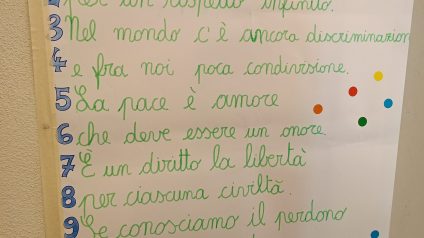 per un rispetto infinito.
3 Nel mondo c'è ancora discriminazion
4 e fra noi poca condivisione.
5 La pace è amore
6 che deve essere un onore.
7 È un diritto la libertà
8 per ciascuna civiltà.
9 Se conosciamo il perdono